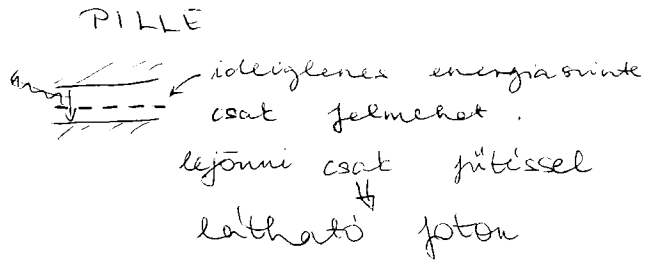 PILLE
ideiglenes energiaszinte
csak felmehet.
lejönni csak fűtéssel
⇓
látható foton